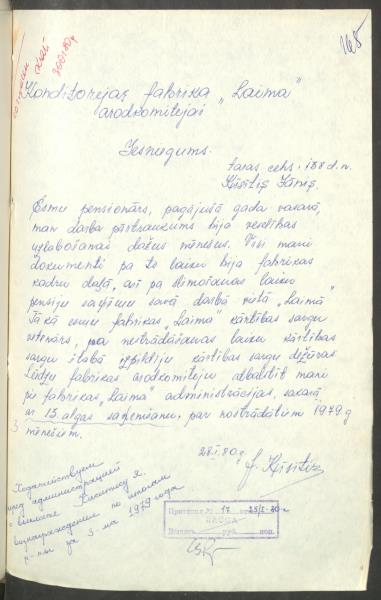 168
Konditorejas fabrika „Laima"
arodkomitejai
Iesniegums.
taras cehs. 188 d. n.
Ķīsītis Jānis.
Esmu pensionārs, pagājušā gada vasarā,
man darba pārtraukums bija veselības
uzlabošanai dažus mēnešus. Visi mani
dokumenti pa to laiku bija fabrikas
kadru daļā, arī pa slimošanas laiku
pensiju saņēmu savā darba vietā „Laimā"
Tā kā esmu fabrikas „Laima" kārtības sargu
veterāns, pa nestrādāšanas laiku kārtības
sargu štābā izpildīju kārtības sargu dežūras
Lūdzu fabrikas arodkomiteju atbalstīt mani
pie fabrikas „Laima" administrācijas, sakarā
ar 13. algas saņemšanu, par nostrādātiem 1979 g
3 mēnešiem.
28.I.80g
J. Ķīsītis
Ходатайствуем
перед администрацией
о выплате Киситису Я.
вознаграждение по итогам
р-ты за 3 м-ца 1979 года
Протокол № 17 25/I-80г.